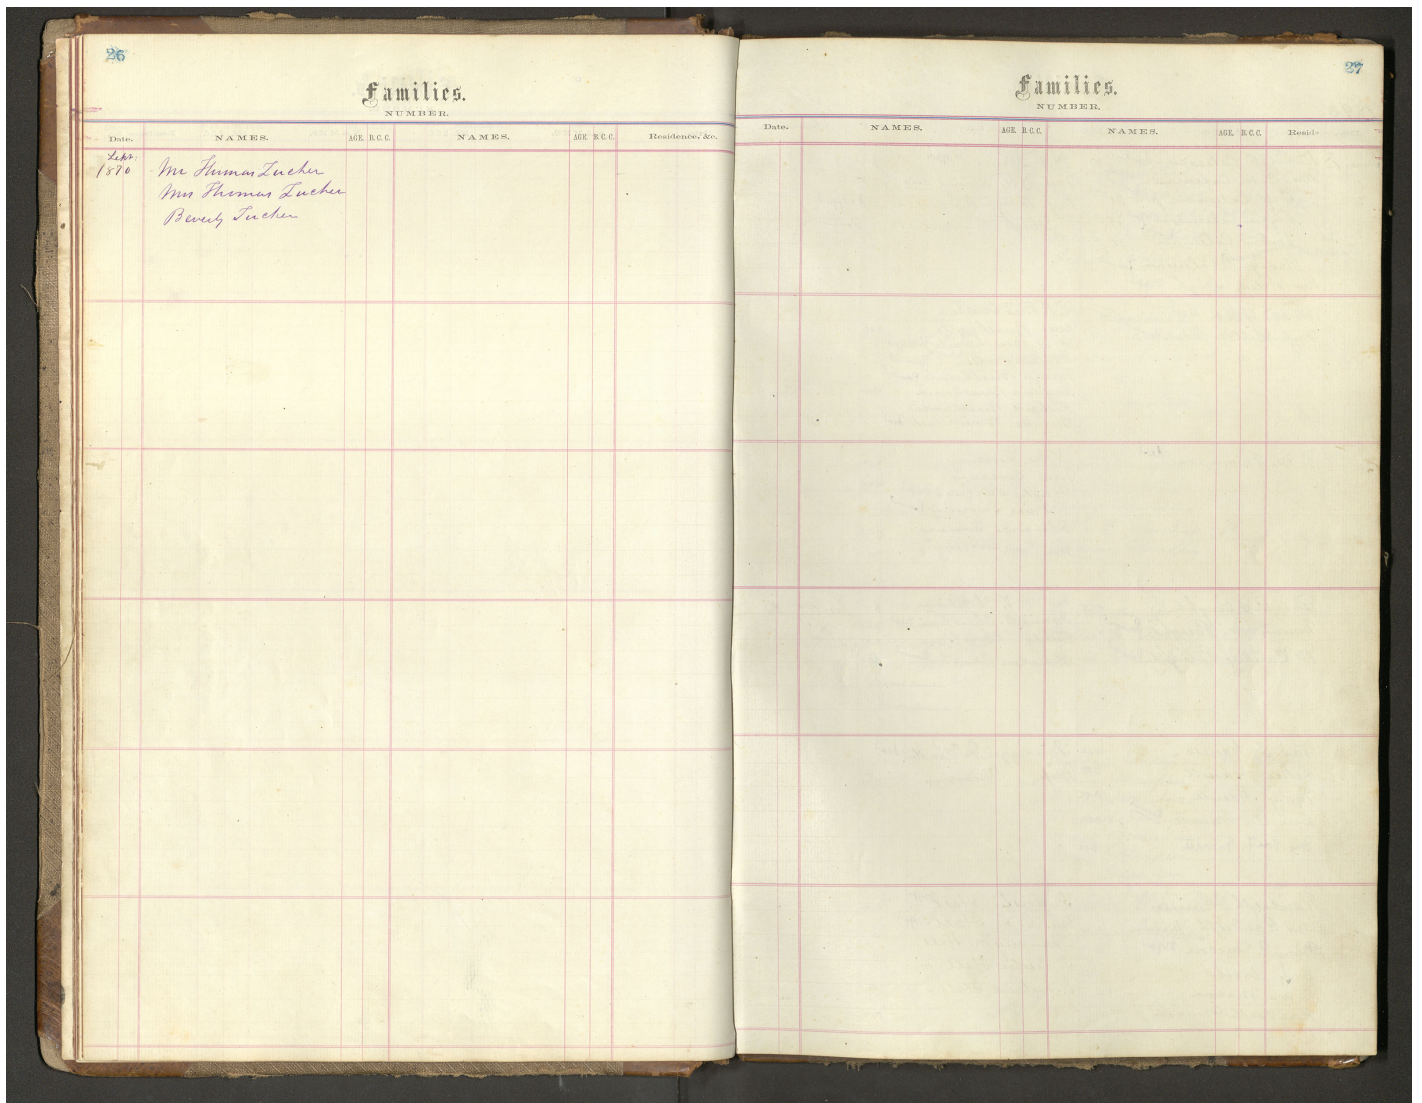 26
Families.
NUMBER.
Date. NAMES. AGE. B. C. C. NAMES. AGE. B. C. C. Residence, &c.
Sept.
1890 Mr Thomas Tucker
Mrs Thomas Tucker
Beverly Tucker
27
Families.
NUMBER.
Date. NAMES. AGE. B. C. C. NAMES. AGE. B. C. C. Resid